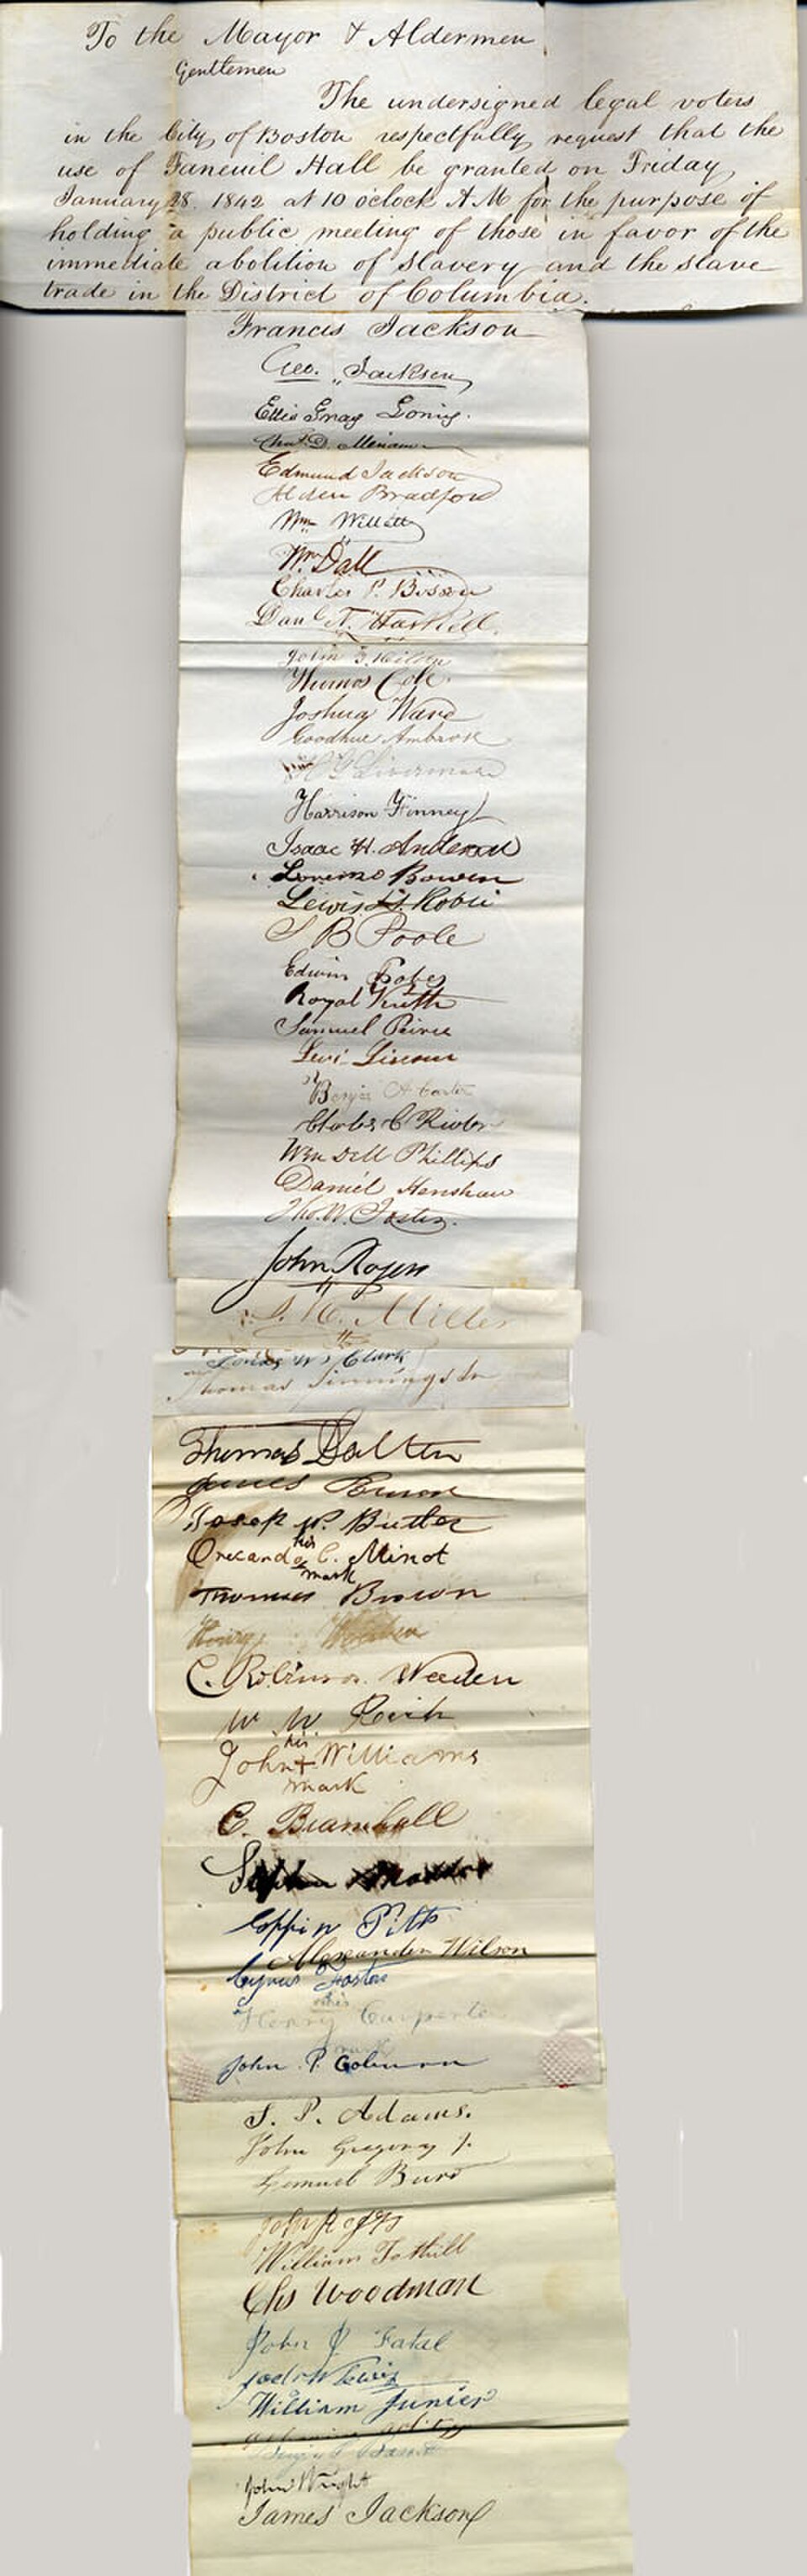 To the Mayor & Aldermen
Gentlemen
The undersigned legal voters
in the City of Boston respectfully request that the
use of Faneuil Hall be granted on Friday
January 28. 1842 at 10 o'clock A.M for the purpose of
holding a public meeting of those in favor of the
immediate abolition of Slavery and the slave
trade in the District of Columbia.
Francis Jackson
Geo. Jackson
Ellis Gray Loring.
Edmund Jackson
Alden Bradford
Wm Willett
Wm Dall
Charles P. Bosson
Danl N. Haskell.
Thomas Cole.
Joshua Ward
Goodhue Ambrose
Livermore
Harrison Finney
Isaac H. Anderson
Lorenzo Bowen
Lewis
S B Poole
Edwin
Royal
Samuel Peirce
Levi
Benja A
Charles C
Wendell Phillips
Daniel Henshaw
Tho. W. Foster.
John Rogers
Miller
Jonas W. Clark
Thomas Jinnings Jr
Thomas Dalton
James
Joseph P. Butler
his
C. Minot
mark
Thomas Brown
Henry Weeden
C. Robinson Weeden
W. W.
his
John + Williams
mark
C. Bramhall
Stephen Maddox
Coffin Pitts
Alexander Wilson
Cyrus Foster
his
Henry Carpenter
mark
John P. Coburn
S. P. Adams.
John Gregory
Lemuel Burr
William Tothill
Chs Woodman
John J Fatal
Joel W Lewis
William Junier
Benja P Bassett
John Wright
James Jackson